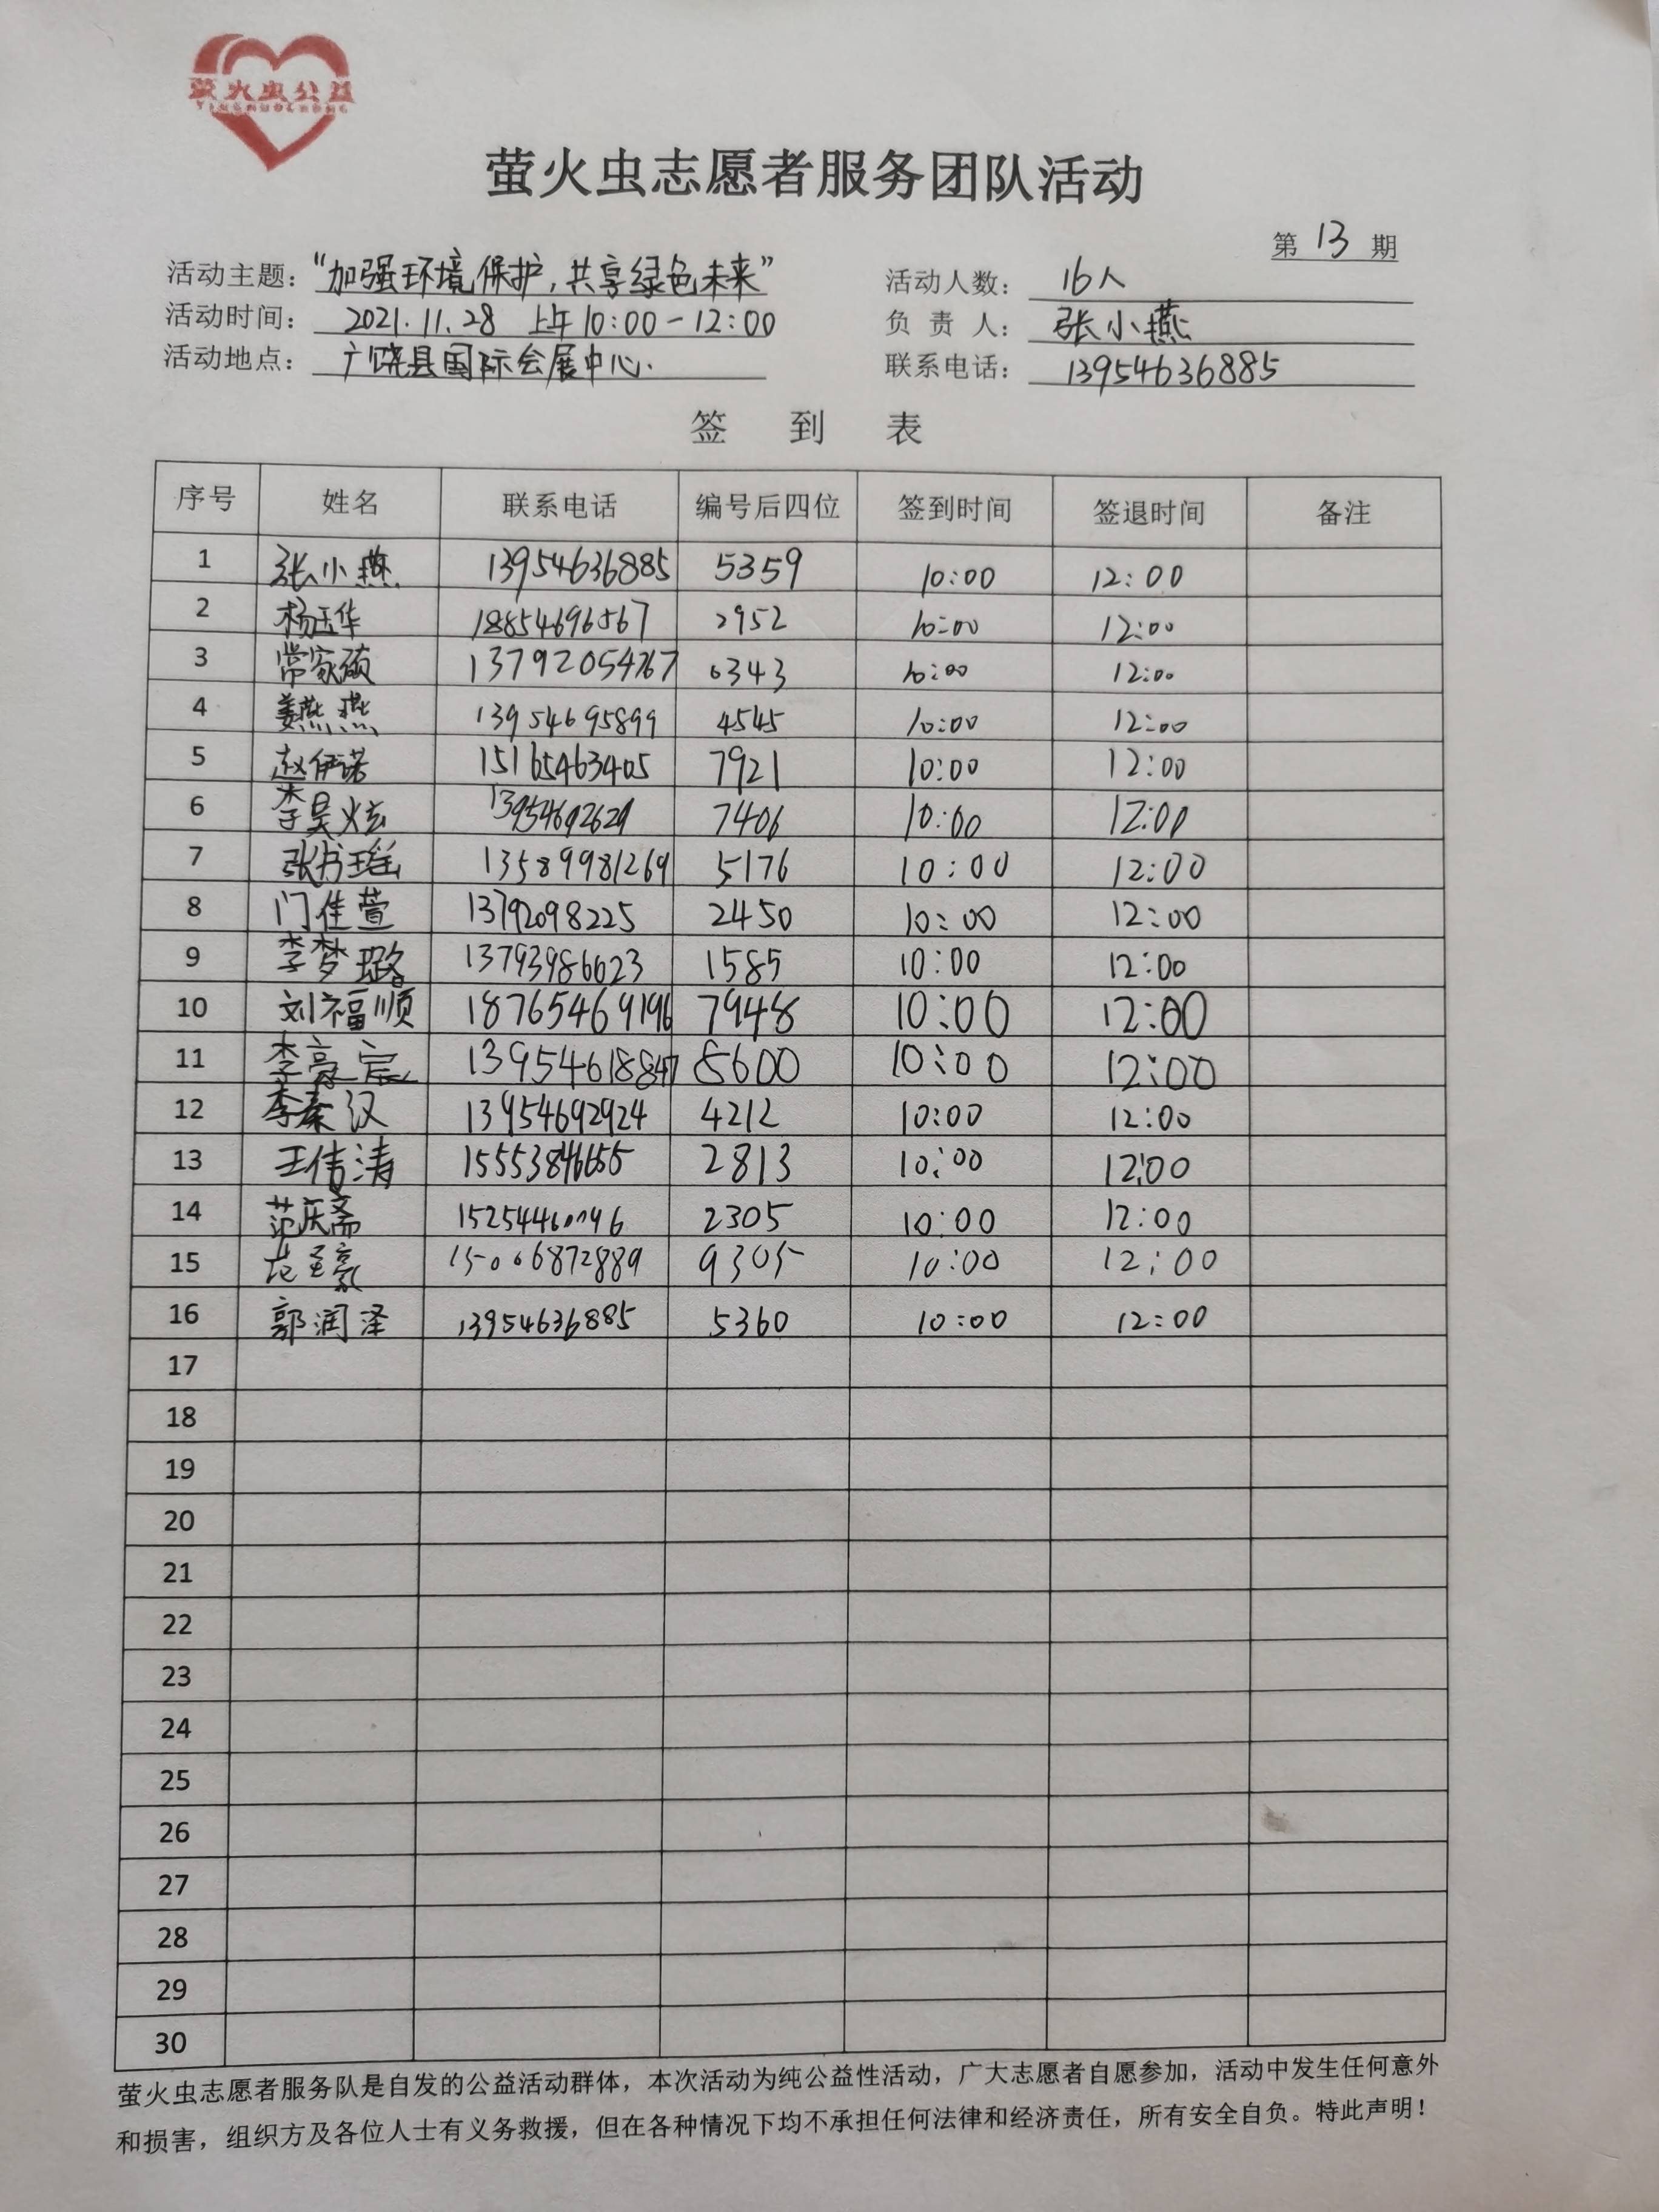 萤火虫公益
YINGHUOCHONG
萤火虫志愿者服务团队活动
第 13 期
活动主题：“加强环境保护，共享绿色未来” 活动人数： 16人
活动时间： 2021.11.28 上午10:00-12:00 负 责 人： 张小燕
活动地点： 广饶县国际会展中心. 联系电话： 13954636885
签 到 表
序号 姓名 联系电话 编号后四位 签到时间 签退时间 备注
1 张小燕 13954636885 5359 10:00 12:00
2 杨玉华 18854696567 2952 10:00 12:00
3 常家硕 13792054767 0343 10:00 12:00
4 姜燕燕 13954695899 4545 10:00 12:00
5 赵伊诺 15165463405 7921 10:00 12:00
6 李昊炫 7406 10:00 12:00
7 张书瑶 13589981269 5176 10:00 12:00
8 门佳萱 13792098225 2450 10:00 12:00
9 李梦璐 13793986623 1585 10:00 12:00
10 刘福顺 18765469196 7948 10:00 12:00
11 李豪宸 13954618847 5600 10:00 12:00
12 李秦汉 13954692924 4212 10:00 12:00
13 王倩清 2813 10:00 12:00
14 范庆斋 2305 10:00 12:00
15 15006872889 9305 10:00 12:00
16 郭润泽 13954636885 5360 10:00 12:00
17
18
19
20
21
22
23
24
25
26
27
28
29
30
萤火虫志愿者服务队是自发的公益活动群体，本次活动为纯公益性活动，广大志愿者自愿参加，活动中发生任何意外
和损害，组织方及各位人士有义务救援，但在各种情况下均不承担任何法律和经济责任，所有安全自负。特此声明！